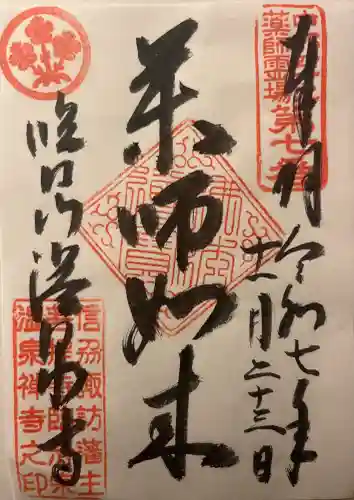 奉拝
令和七年
十一月二十三日
薬師霊場第七番
薬師如来
臨江山温泉寺
信州諏訪藩主
温泉禅寺之印